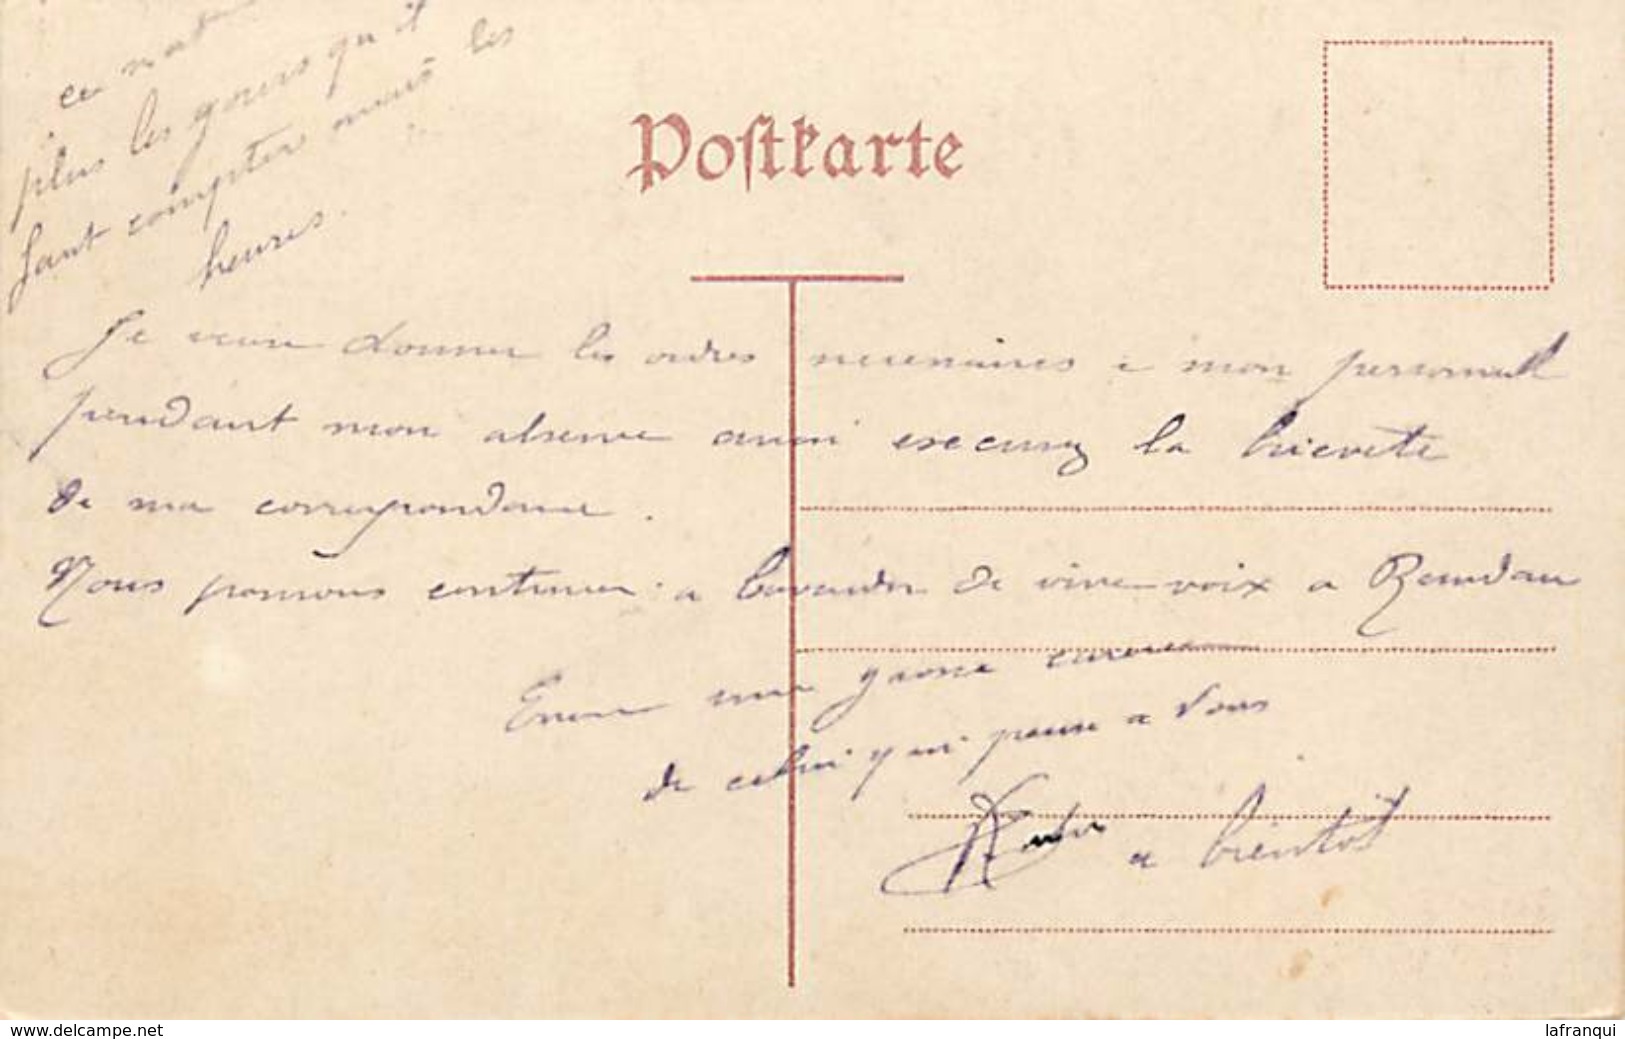 ce n'est
plus les jours qu'il
faut compter mais les
heures.
Postkarte
Je veux donner les ordres necessaires a mon personnel
pendant mon absence aussi excusez la brievete
de ma correspondance.
Nous pourrons continuer a bavarder de vive voix a
Encore une grosse caresse
de celui qui pense a Vous
a bientôt
www.delcampe.net
lafranqui